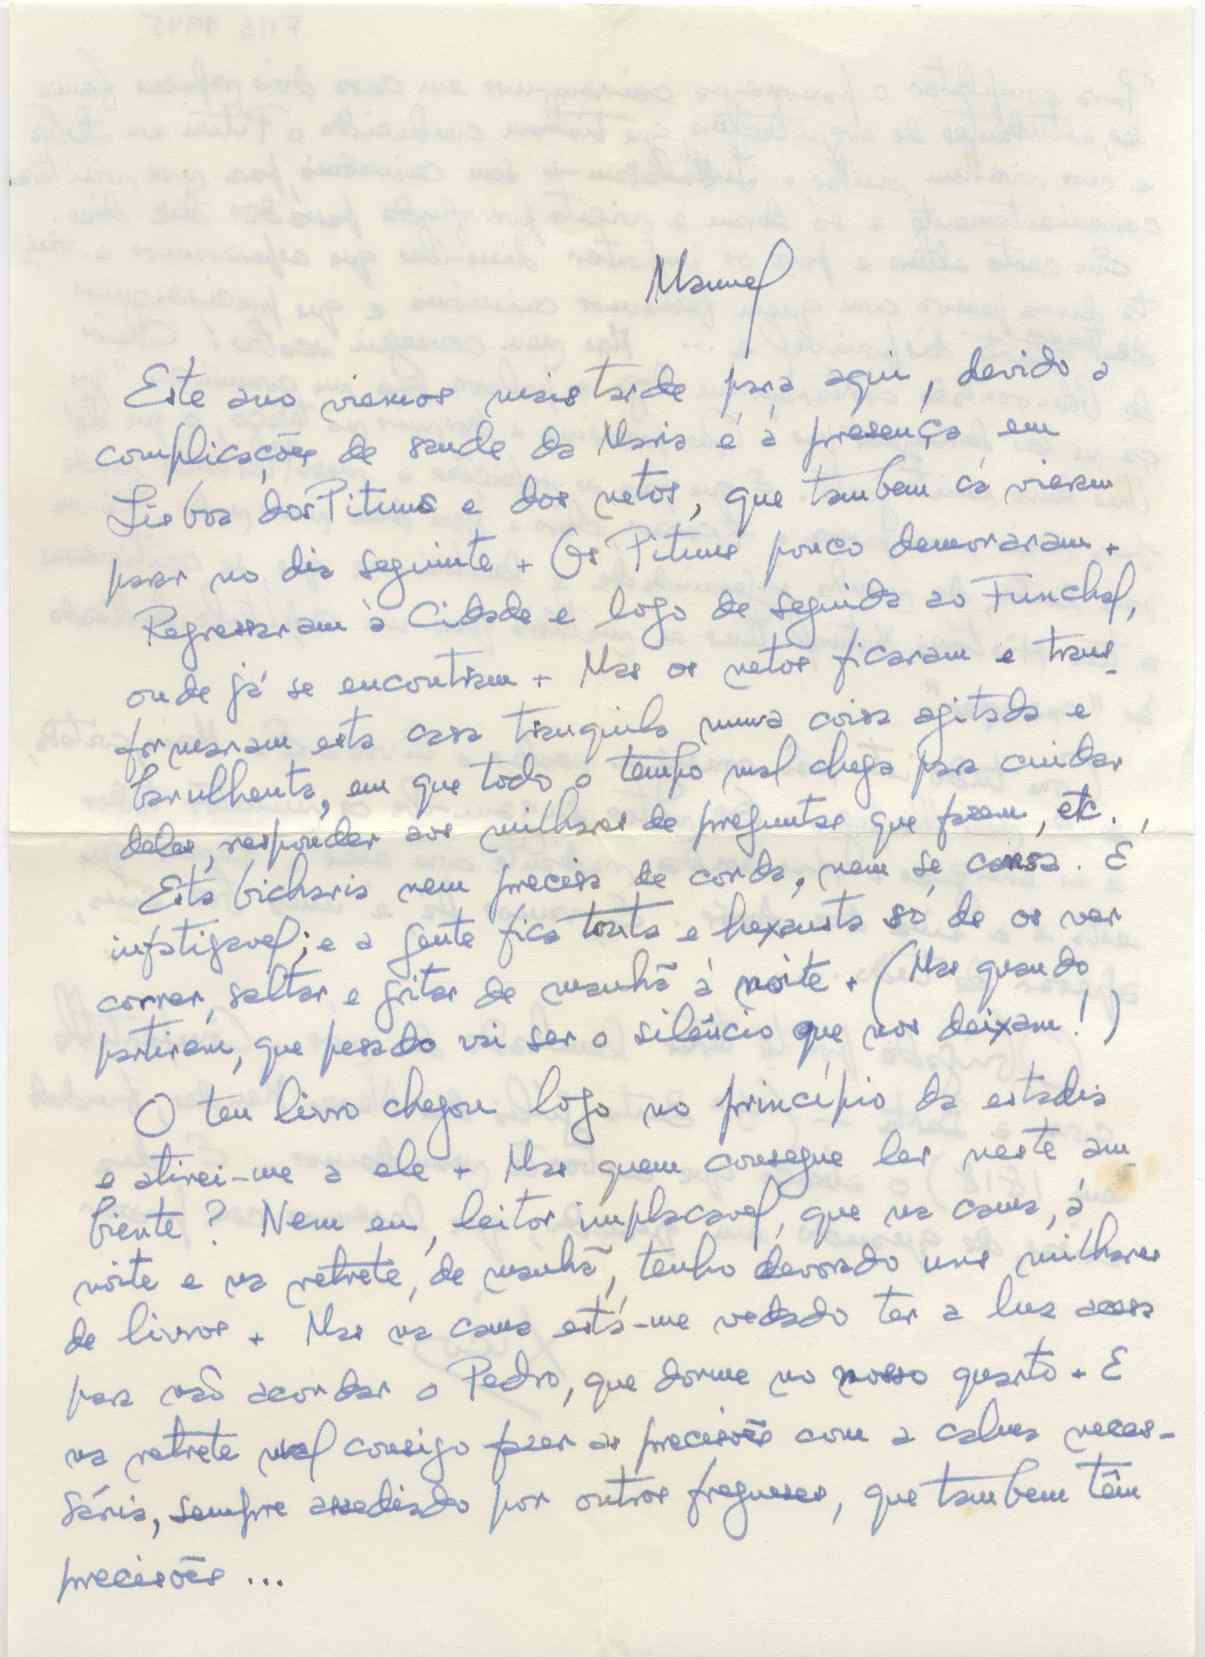 Manuel
Este ano viemos mais tarde para aqui, devido a
complicações de saude da Maria e à presença em
Lisboa dos Pitums e dos netos, que tambem cá vieram
parar no dia seguinte. Os Pitums pouco demoraram.
Regressaram à Cidade e logo de seguida ao Funchal,
onde já se encontram. Mas os netos ficaram e trans-
formaram esta casa tranquila numa coisa agitada e
barulhenta, em que todo o tempo mal chega para cuidar
deles, responder aos milhares de preguntas que fazem, etc.,
Esta bicharia nem precisa de corda, nem se cansa. É
infatigavel; e a gente fica tonta e hexausta só de os ver
correr, saltar e gritar de manhã à noite. (Mas quando
partirem, que pesado vai ser o silêncio que nos deixam!)
O teu livro chegou logo no princípio da estadia
e atirei-me a ele. Mas quem consegue ler neste am-
biente? Nem eu, leitor implacavel, que na cama, à
noite e na retrete, de manhã, tenho devorado uns milhares
de livros. Mas na cama está-me vedado ter a luz acesa
para não acordar o Pedro, que dorme no nosso quarto. E
na retrete mal consigo fazer as precisões com a calma neces-
sária, sempre assediado por outros freguezes, que tambem têm
precisões ...